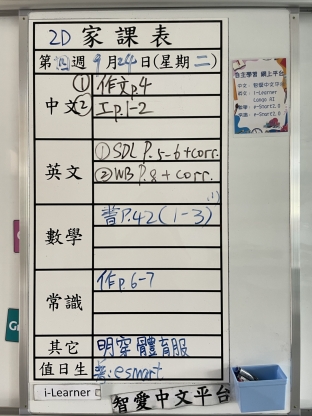 2D 家課表
第四週 9月24日(星期二)
中文
① 作文p.4
② 工p.1-2
英文
① SDL p.5-6+corr.
② WB p.8+corr.
數學
p.42(1-3)
常識
作p.6-7
其它
明穿體育服
值日生
esmart
i-Learner
智愛中文平台
自主學習 網上平台
中文：智愛中文平台
英文：i-Learner